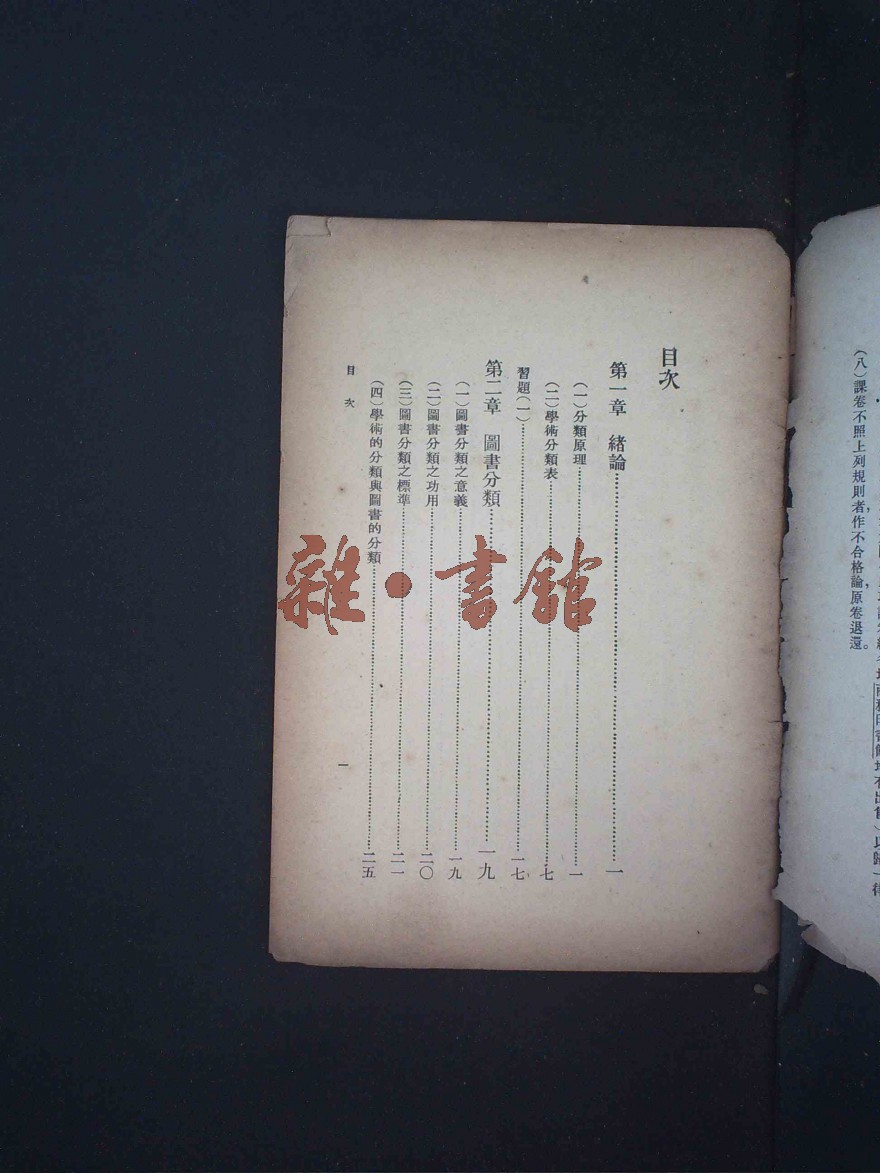 （八）課卷不照上列規則者，作不合格論，原卷退還。
目次
第一章　緒論…………一
（一）分類原理…………一
（二）學術分類表…………七
習題（一）…………一七
第二章　圖書分類…………一九
（一）圖書分類之意義…………一九
（二）圖書分類之功用…………二〇
（三）圖書分類之標準…………二一
（四）學術的分類與圖書的分類…………二五
目次
一
雜·書館